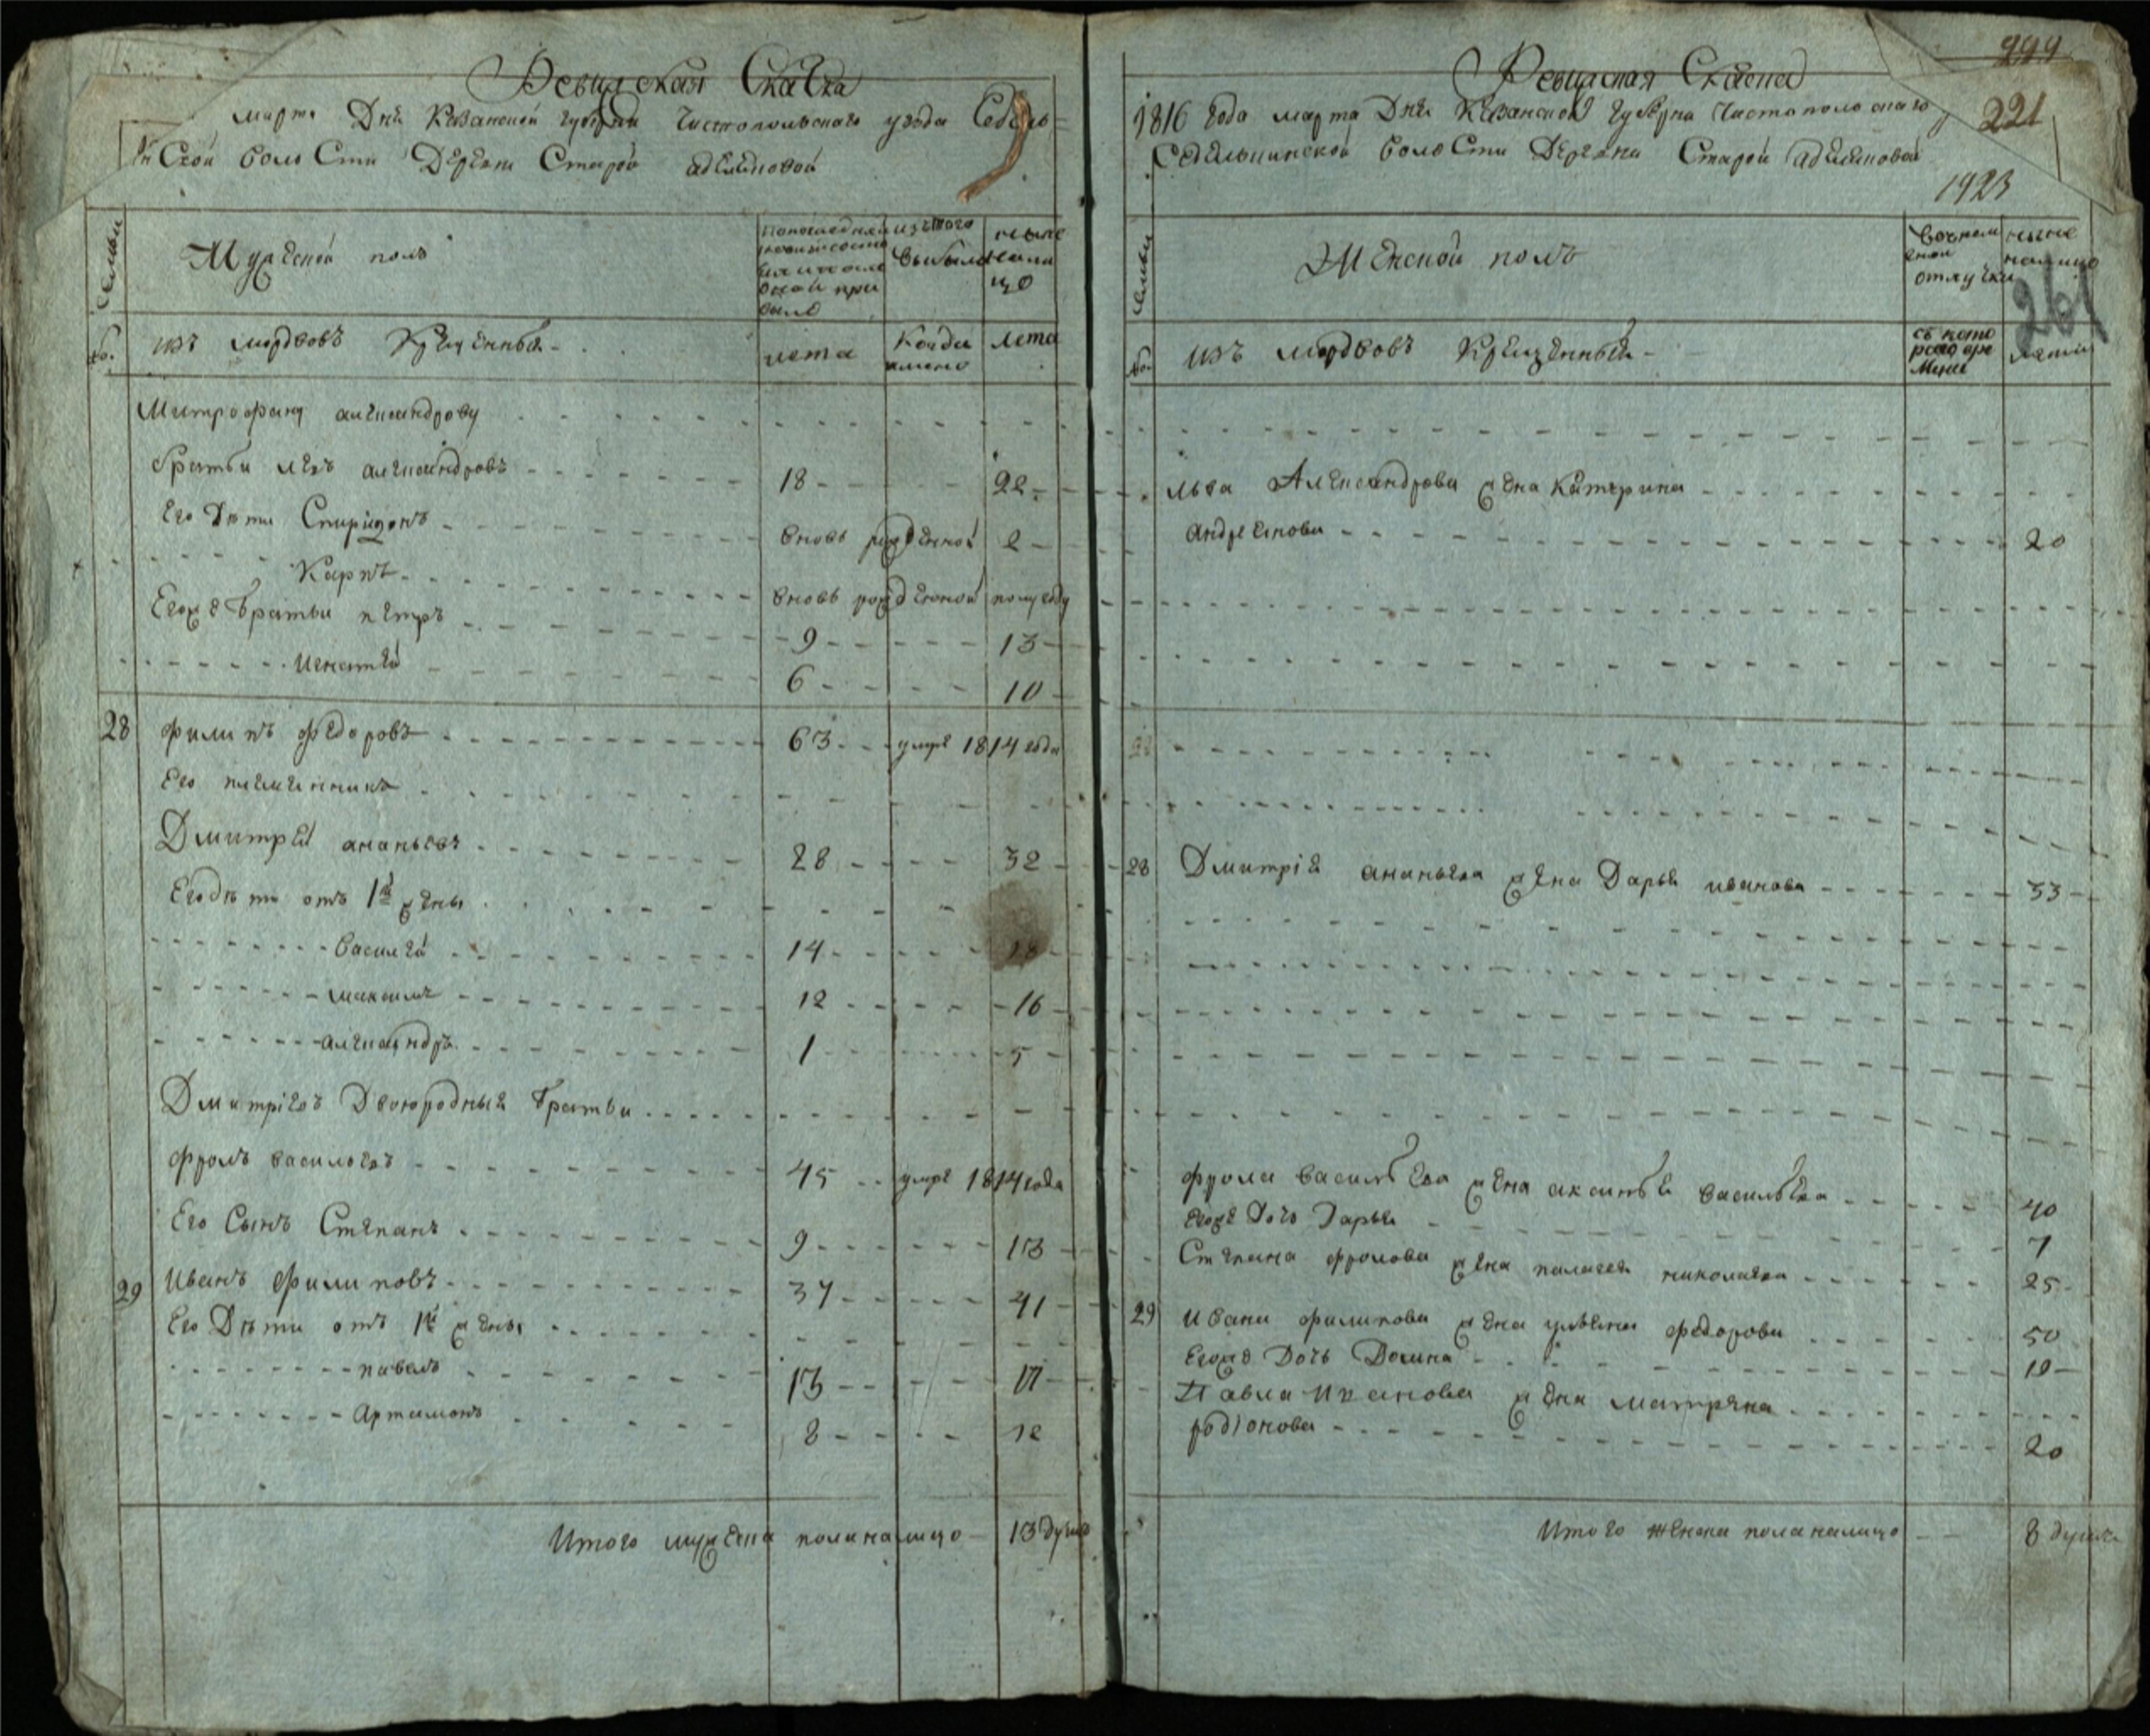 Ревижская Скаска
марта Дня Казанской губернии Чистопольского уезда Седель=
Ской волости Деревни Старой адемдновой
семьи
Мужеской полъ
По последней ревизии состояло и после оной прибыло
изъ того выбыло
ныне на лицо
№.
изъ мордовъ Крещенныя
лета
Когда имено
лета
Митрофану александрову
братьи левъ александровъ 18 22
Его Дети Спиридонъ вновь рожденной 2
Карпъ вновь рожденной полугоду
Егоже братьи петръ 9 13
игнатей 6 10
28 филипъ федоровъ 63 умре 1814 года
Его племянникъ
Дмитрей ананьевъ 28 32
Его дети отъ 1й жены
Василей 14 18
максимъ 12 16
александръ 1 5
Дмитріевъ Двоюродныя братьи
фролъ васильевъ 45 умре 1814 года
Его Сынъ Степанъ 9 13
29 Иванъ филиповъ 37 41
Его Дети отъ 1й жены
павелъ 13 17
Артамонъ 8 12
Итого мужеска пола налицо 13 душъ
Ревижская Скаска
1816 года марта Дня Казанской губерни Чистополскаго
Седельнинской волости Деревни Старой
221
1923
261
семьи
Женской полъ
во временной отлучки
ныне налицо
№.
изъ мордовъ Крещенныя
съ которого времени
лета
льва Александрова жена Катерина
андреянова 20
28
28 Дмитрія ананьева жена Дарья иванова 33
фрола васильева жена аксинья васильева 40
Егоже Дочь Дарья 7
Степана фролова жена палагея николаева 25
29 ивана филипова жена ульяна федорова 50
Егоже Дочь Домна 10
Павла Иванова жена матряна
родіонова 20
Итого женска пола налицо 8 душъ